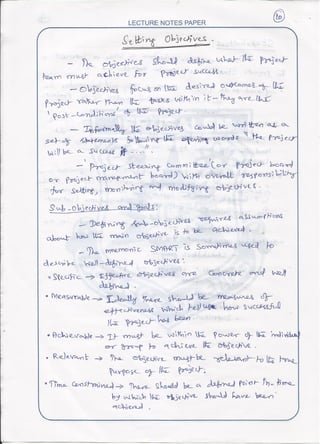 LECTURE NOTES PAPER
Setting Objectives
- The objectives should define what the project
team must achieve for project success.
- Objectives focus on the desired outcomes of the
project rather than the tasks within it - they are the
'post-conditions' of the project.
- Informally, the objectives could be written as a
set of statements following the opening words "the project
will be a success if .....".
- Project steering committee (or project board
or project management board) with overall responsibility
for setting, monitoring and modifying objectives.
Sub-objectives and goals:
- Defining sub-objectives requires assumptions
about how the main objective is to be achieved.
- The mnemonic SMART is sometimes used to
describe well-defined objectives:
• Specific → Effective objectives are concrete and well
defined.
• Measurable → Ideally there should be measures of
effectiveness which tell us how successful
the project had been.
• Achievable → It must be within the power of the individual
or group to achieve the objective.
• Relevant → The objective must be relevant to the true
purpose of the project.
• Time constrained → There should be a defined point in time
by which the objective should have been
achieved.